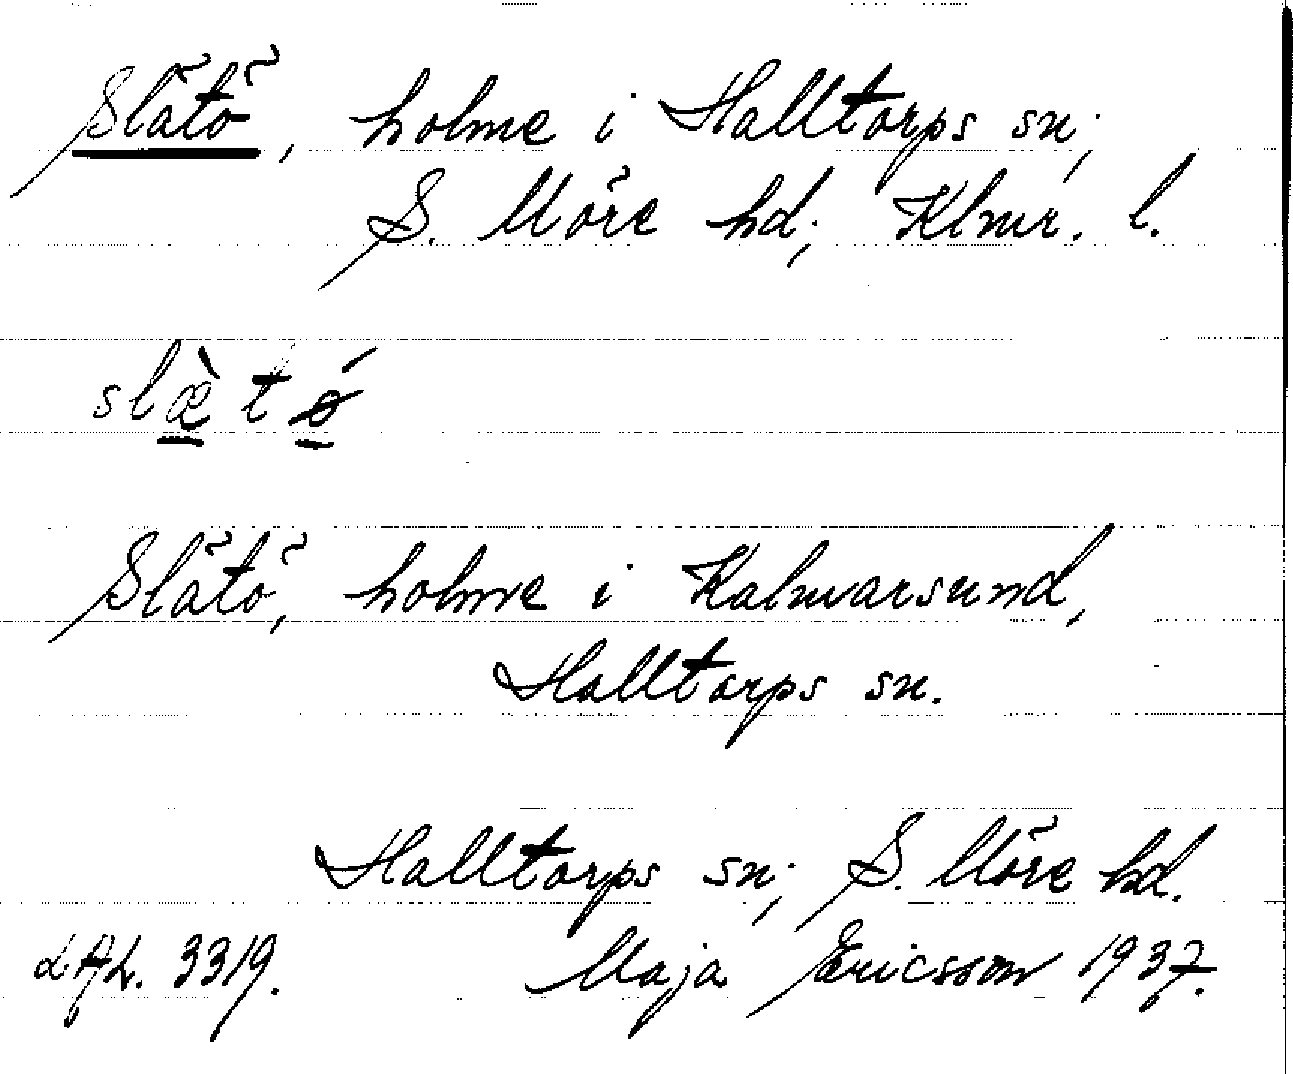 Slätö, holme i Halltorps sn;
S. Möre hd; Klmr. l.
slæ̀tǿ
Slätö, holme i Kalmarsund,
Halltorps sn.
Halltorps sn; S. Möre hd.
LAL. 3319. Maja Ericsson 1937.